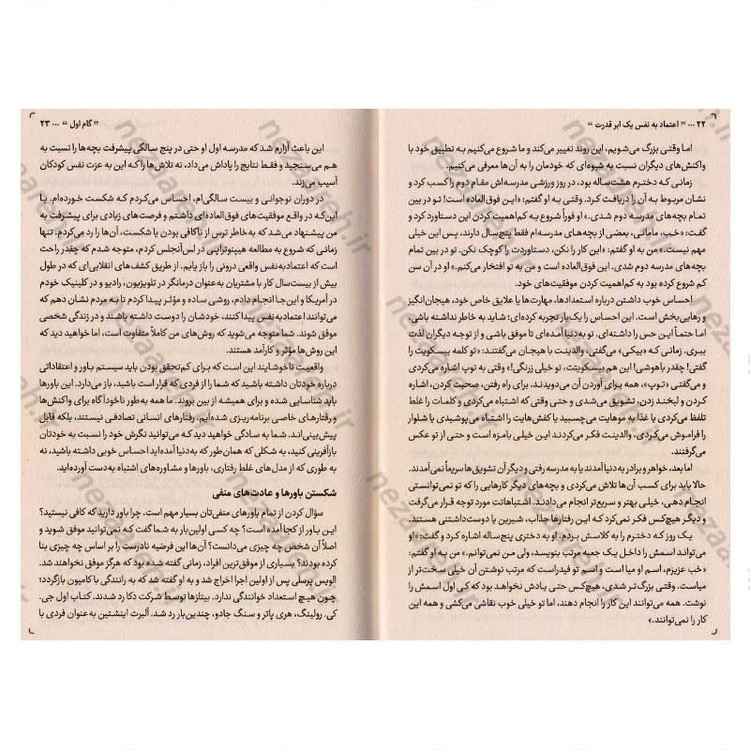 ۲۲ ... " اعتماد به نفس یک ابر قدرت "
اما وقتی بزرگ می‌شویم، این روند تغییر می‌کند و ما شروع می‌کنیم به تطبیق خود با
واکنش‌های دیگران نسبت به شیوه‌ای که خودمان را به آن‌ها معرفی می‌کنیم.
زمانی که دخترم هشت‌ساله بود، در روز ورزشی مدرسه‌اش مقام دوم را کسب کرد و
نشان مربوط به آن را دریافت کرد. وقتی به او گفتم: «این فوق‌العاده است! تو در بین
تمام بچه‌های مدرسه دوم شدی.» او فوراً شروع به کم‌اهمیت کردن این دستاورد کرد و
گفت: «خب، مامانی، بعضی از بچه‌های مدرسه‌ام فقط پنج‌سال دارند، پس این خیلی
مهم نیست.» من به او گفتم: «این کار را نکن، دستاوردت را کوچک نکن. تو در بین تمام
بچه‌های مدرسه دوم شدی. این فوق‌العاده است و من به تو افتخار می‌کنم.» او در آن سن
کم شروع کرده بود به کم‌اهمیت کردن موفقیت‌های خود.
احساس خوب داشتن درباره استعدادها، مهارت‌ها یا علایق خاص خود، هیجان‌انگیز
و رهایی‌بخش است. این احساس را یک‌بار تجربه کرده‌ای؛ شاید به خاطر نداشته باشی،
اما حتماً این حس را داشته‌ای. تو به‌دنیا آمده‌ای تا موفق باشی و از توجه دیگران لذت
ببری. زمانی که «بیکی» می‌گفتی، والدینت با هیجان می‌گفتند: «تو کلمه بیسکویت را
گفتی! چقدر باهوشی! این هم بیسکویتت، تو خیلی زرنگی!» وقتی به توپ اشاره می‌کردی
و می‌گفتی «توپ»، همه برای آوردن آن می‌دویدند. برای راه رفتن، صحبت کردن، اشاره
کردن و لبخند زدن، تشویق می‌شدی و حتی وقتی که اشتباه می‌کردی و کلمات را غلط
تلفظ می‌کردی یا غذا به موهایت می‌چسبید یا کفش‌هایت را اشتباه می‌پوشیدی یا شلوار
را فراموش می‌کردی، والدینت فکر می‌کردند این خیلی بامزه است و حتی از تو عکس
می‌گرفتند.
اما بعد، خواهر و برادر به دنیا آمدند یا به مدرسه رفتی و دیگر آن تشویق‌ها سریعاً نمی‌آمدند.
حالا باید برای کسب آن‌ها تلاش می‌کردی و بچه‌های دیگر کارهایی را که تو نمی‌توانستی
انجام دهی، خیلی بهتر و سریع‌تر انجام می‌دادند. اشتباهاتت مورد توجه قرار می‌گرفت
و دیگر هیچ‌کس فکر نمی‌کرد که این رفتارها جذاب، شیرین یا دوست‌داشتنی هستند.
یک روز که دخترم را به کلاسش بردم، او به دختری پنج‌ساله اشاره کرد و گفت: «او
می‌تواند اسمش را داخل یک جعبه مرتب بنویسد، ولی من نمی‌توانم.» من به او گفتم:
«خب عزیزم، اسم او میا است و اسم تو فیدراست که مرتب نوشتن آن خیلی سخت‌تر از
میاست. وقتی بزرگ‌تر شدی، هیچ‌کس حتی یادش نخواهد بود که کی اول اسمش را
نوشت. همه می‌توانند این کار را انجام دهند، اما تو خیلی خوب نقاشی می‌کشی و همه این
کار را نمی‌توانند.»
" گام اول " ... ۲۳
این باعث آزارم شد که مدرسه اول او حتی در پنج سالگی پیشرفت بچه‌ها را نسبت به
هم می‌سنجید و فقط نتایج را پاداش می‌داد، نه تلاش‌ها را که این به عزت نفس کودکان
آسیب می‌زند.
در دوران نوجوانی و بیست سالگی‌ام، احساس می‌کردم که شکست خورده‌ام. با
این‌که در واقع موفقیت‌های فوق‌العاده‌ای داشتم و فرصت‌های زیادی برای پیشرفت به
من پیشنهاد می‌شد که به خاطر ترس از ناکافی بودن یا شکست، آن‌ها را رد می‌کردم. تنها
زمانی که شروع به مطالعه هیپنوتراپی در لس‌آنجلس کردم، متوجه شدم که چقدر راحت
است که اعتمادبه‌نفس واقعی درونی را باز یابم. از طریق کشف‌های انقلابی‌ای که در طول
بیش از بیست‌سال کار با مشتریان به‌عنوان درمانگر در تلویزیون، رادیو و در کلینیک خودم
در آمریکا و این‌جا انجام دادم، روشی ساده و مؤثر پیدا کردم تا به مردم نشان دهم که
می‌توانند اعتمادبه‌نفس پیدا کنند، خودشان را دوست داشته باشند و در زندگی شخصی
موفق شوند. شما متوجه می‌شوید که روش‌های من کاملاً متفاوت است، اما خواهید دید که
این روش‌ها مؤثر و کارآمد هستند.
واقعیت ناخوشایند این است که برای کم‌تحقق بودن باید سیستم باور و اعتقاداتی
درباره خودتان داشته باشید که شما را از فردی که قرار است باشید، باز می‌دارد. این باورها
باید شناسایی شده و برای همیشه از بین بروند. ما همه به‌طور ناخودآگاه برای واکنش‌ها
و رفتارهای خاصی برنامه‌ریزی شده‌ایم. رفتارهای انسانی تصادفی نیستند، بلکه قابل
پیش‌بینی‌اند. شما به سادگی خواهید دید که می‌توانید نگرش خود را نسبت به خودتان
بازآفرینی کنید، به شکلی که همان‌طور که به‌دنیا آمده‌اید احساس خوبی داشته باشید، نه
به طوری که از مدل‌های غلط رفتاری، باورها و مشاوره‌های اشتباه به‌دست آورده‌اید.
شکستن باورها و عادت‌های منفی
سؤال کردن از تمام باورهای منفی‌تان بسیار مهم است. چرا باور دارید که کافی نیستید؟
این باور از کجا آمده است؟ چه کسی اولین‌بار به شما گفت که نمی‌توانید موفق شوید و
اصلاً آن شخص چه چیزی می‌دانست؟ آن‌ها این فرضیه نادرست را بر اساس چه چیزی بنا
کرده بودند؟ بسیاری از موفق‌ترین افراد، زمانی گفته شده بود که هرگز موفق نخواهند شد.
الویس پرسلی پس از اولین اجرا اخراج شد و به او گفته شد که به رانندگی با کامیون بازگردد؛
چون هیچ استعداد خوانندگی ندارد. بیتلزها توسط شرکت دکا رد شدند. کتاب اول جی.
کی. رولینگ، هری پاتر و سنگ جادو، چندین‌بار رد شد. آلبرت اینشتین به‌عنوان فردی با
nezaah.ir